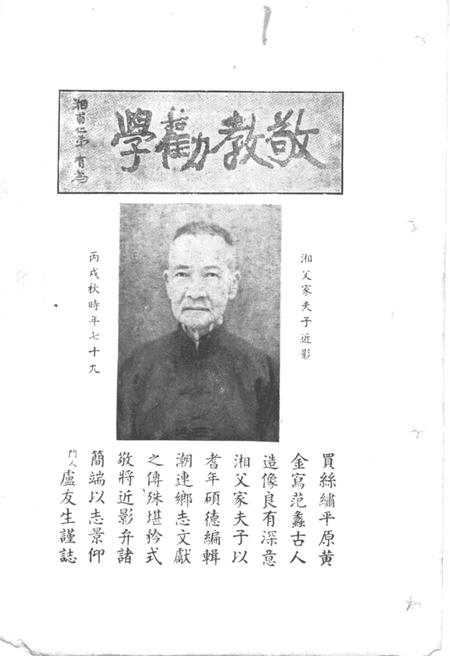 敬教勸學
湘父仁弟 有為
湘父家夫子近影
丙戌秋時年七十九
買絲繡平原黃
金寫范蠡古人
造像良有深意
湘父家夫子以
耆年碩德編輯
潮連鄉志文獻
之傳殊堪矜式
敬將近影弁諸
簡端以志景仰
門人盧友生謹誌